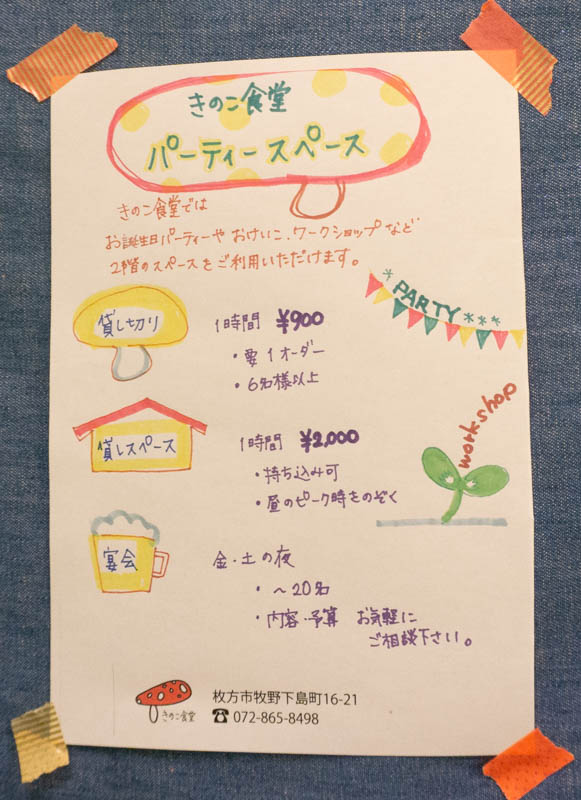 きのこ食堂
パーティースペース
きのこ食堂では
お誕生日パーティーや おけいこ、ワークショップなど
2階のスペースをご利用いただけます。
*PARTY***
貸し切り
1時間 ¥900
・要1オーダー
・6名様以上
workshop
貸しスペース
1時間 ¥2,000
・持ち込み可
・昼のピーク時をのぞく
宴会
金・土の夜
・〜20名
・内容・予算 お気軽に
ご相談下さい。
きのこ食堂
枚方市牧野下島町16-21
☎ 072-865-8498